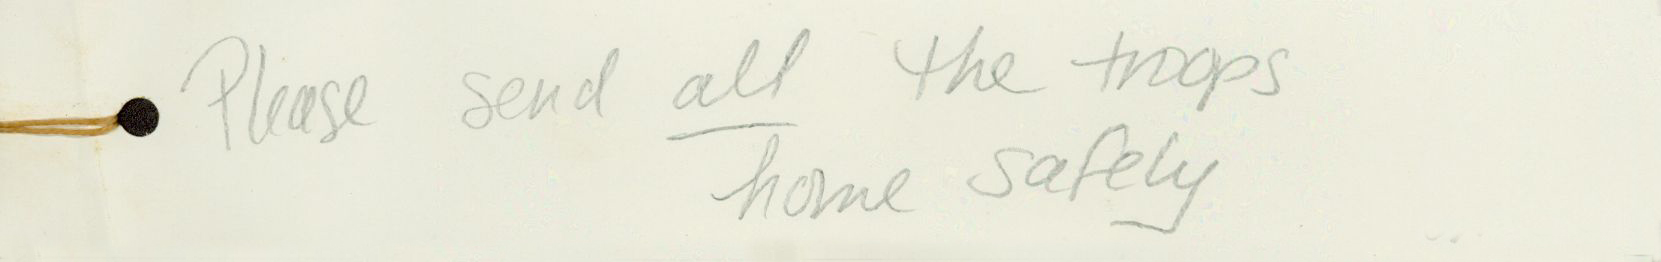 Please send all the troops
home safely